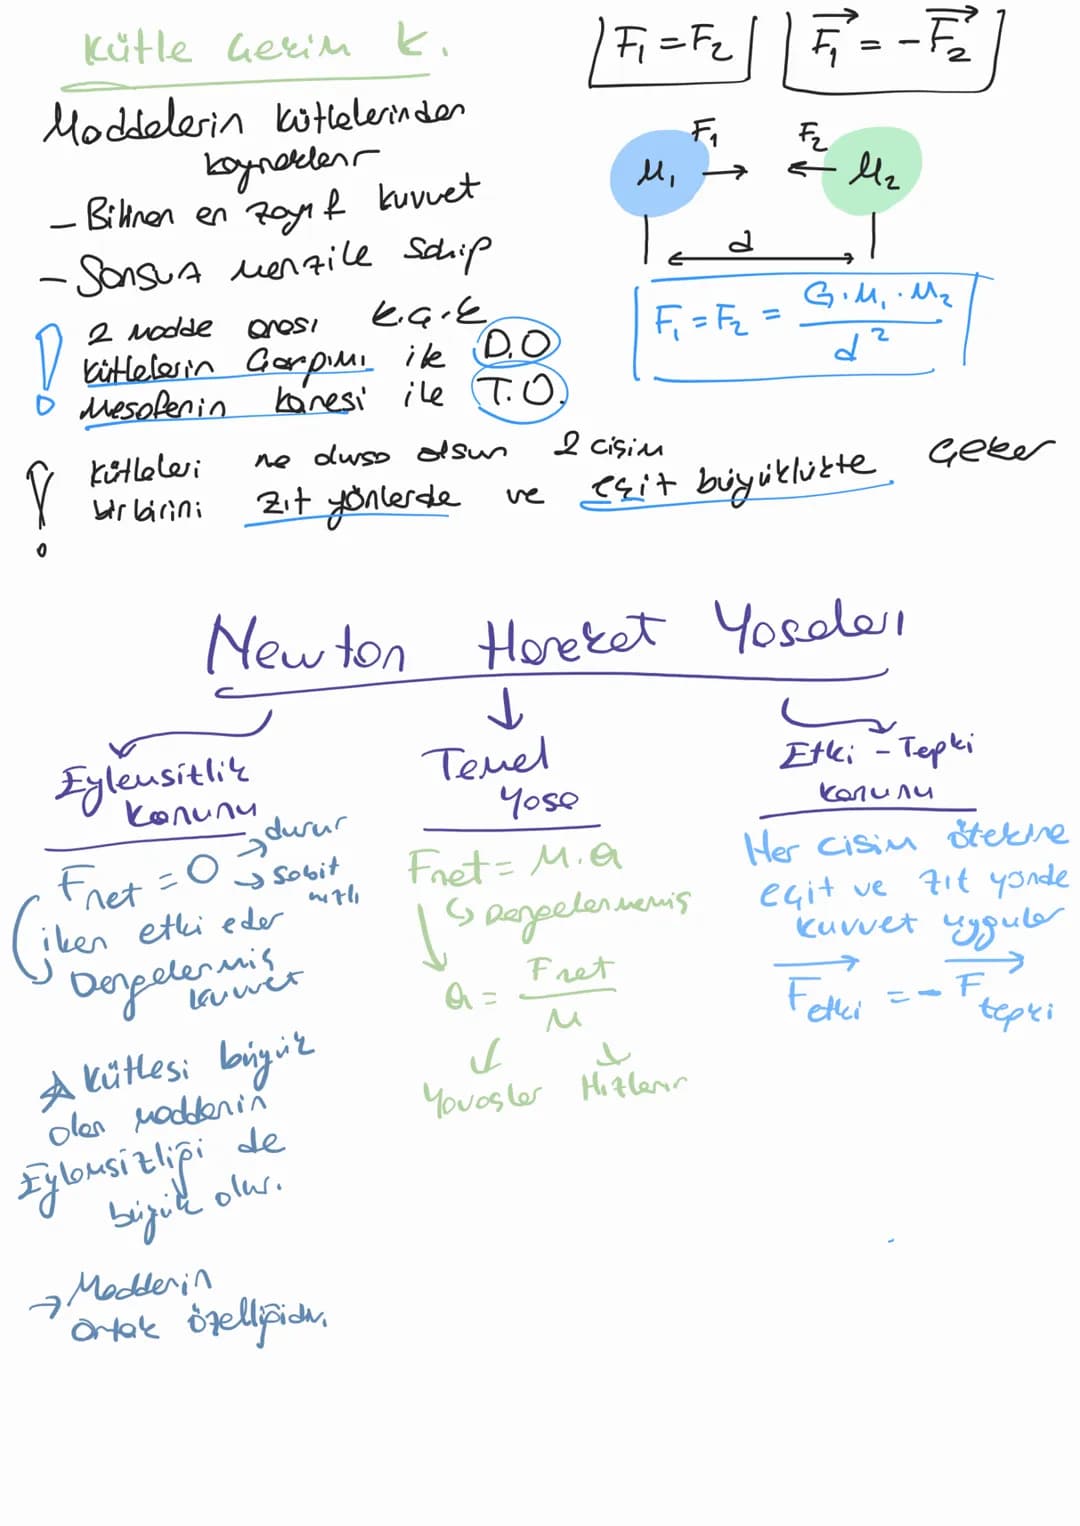 Kütle Çekim k.
Maddelerin kütlelerinden
kaynaklanır
- Bilinen en zayıf kuvvet
- Sonsuz menzile sahip
2 madde arası K.Ç.K
kütlelerin Çarpımı ile D.O
Mesafenin karesi ile T.O.
F₁ = F₂
F₁ = -F₂
F₁ F₂
M₁ M₂
d
F₁ = F₂ = G.M₁.M₂
d²
Kütleleri ne olursa olsun 2 cisim
birbirini zıt yönlerde ve eşit büyüklükte Çeker
Newton Hareket Yasaları
Eylemsizlik
Kanunu
Fnet = 0
durur
Sabit
hızlı
iken etki eder
Dengelenmiş
kuvvet
Kütlesi büyük
olan maddenin
Eylemsizliği de
büyük olur.
→ Maddenin
Ortak özelliğidir.
Temel
Yasa
Fnet = M.a
Dengelenmemiş
a = Fnet
M
Yavaşlar Hızlanır
Etki - Tepki
Kanunu
Her cisim ötekine
eşit ve zıt yönde
kuvvet uygular
Fetki = - Ftepki